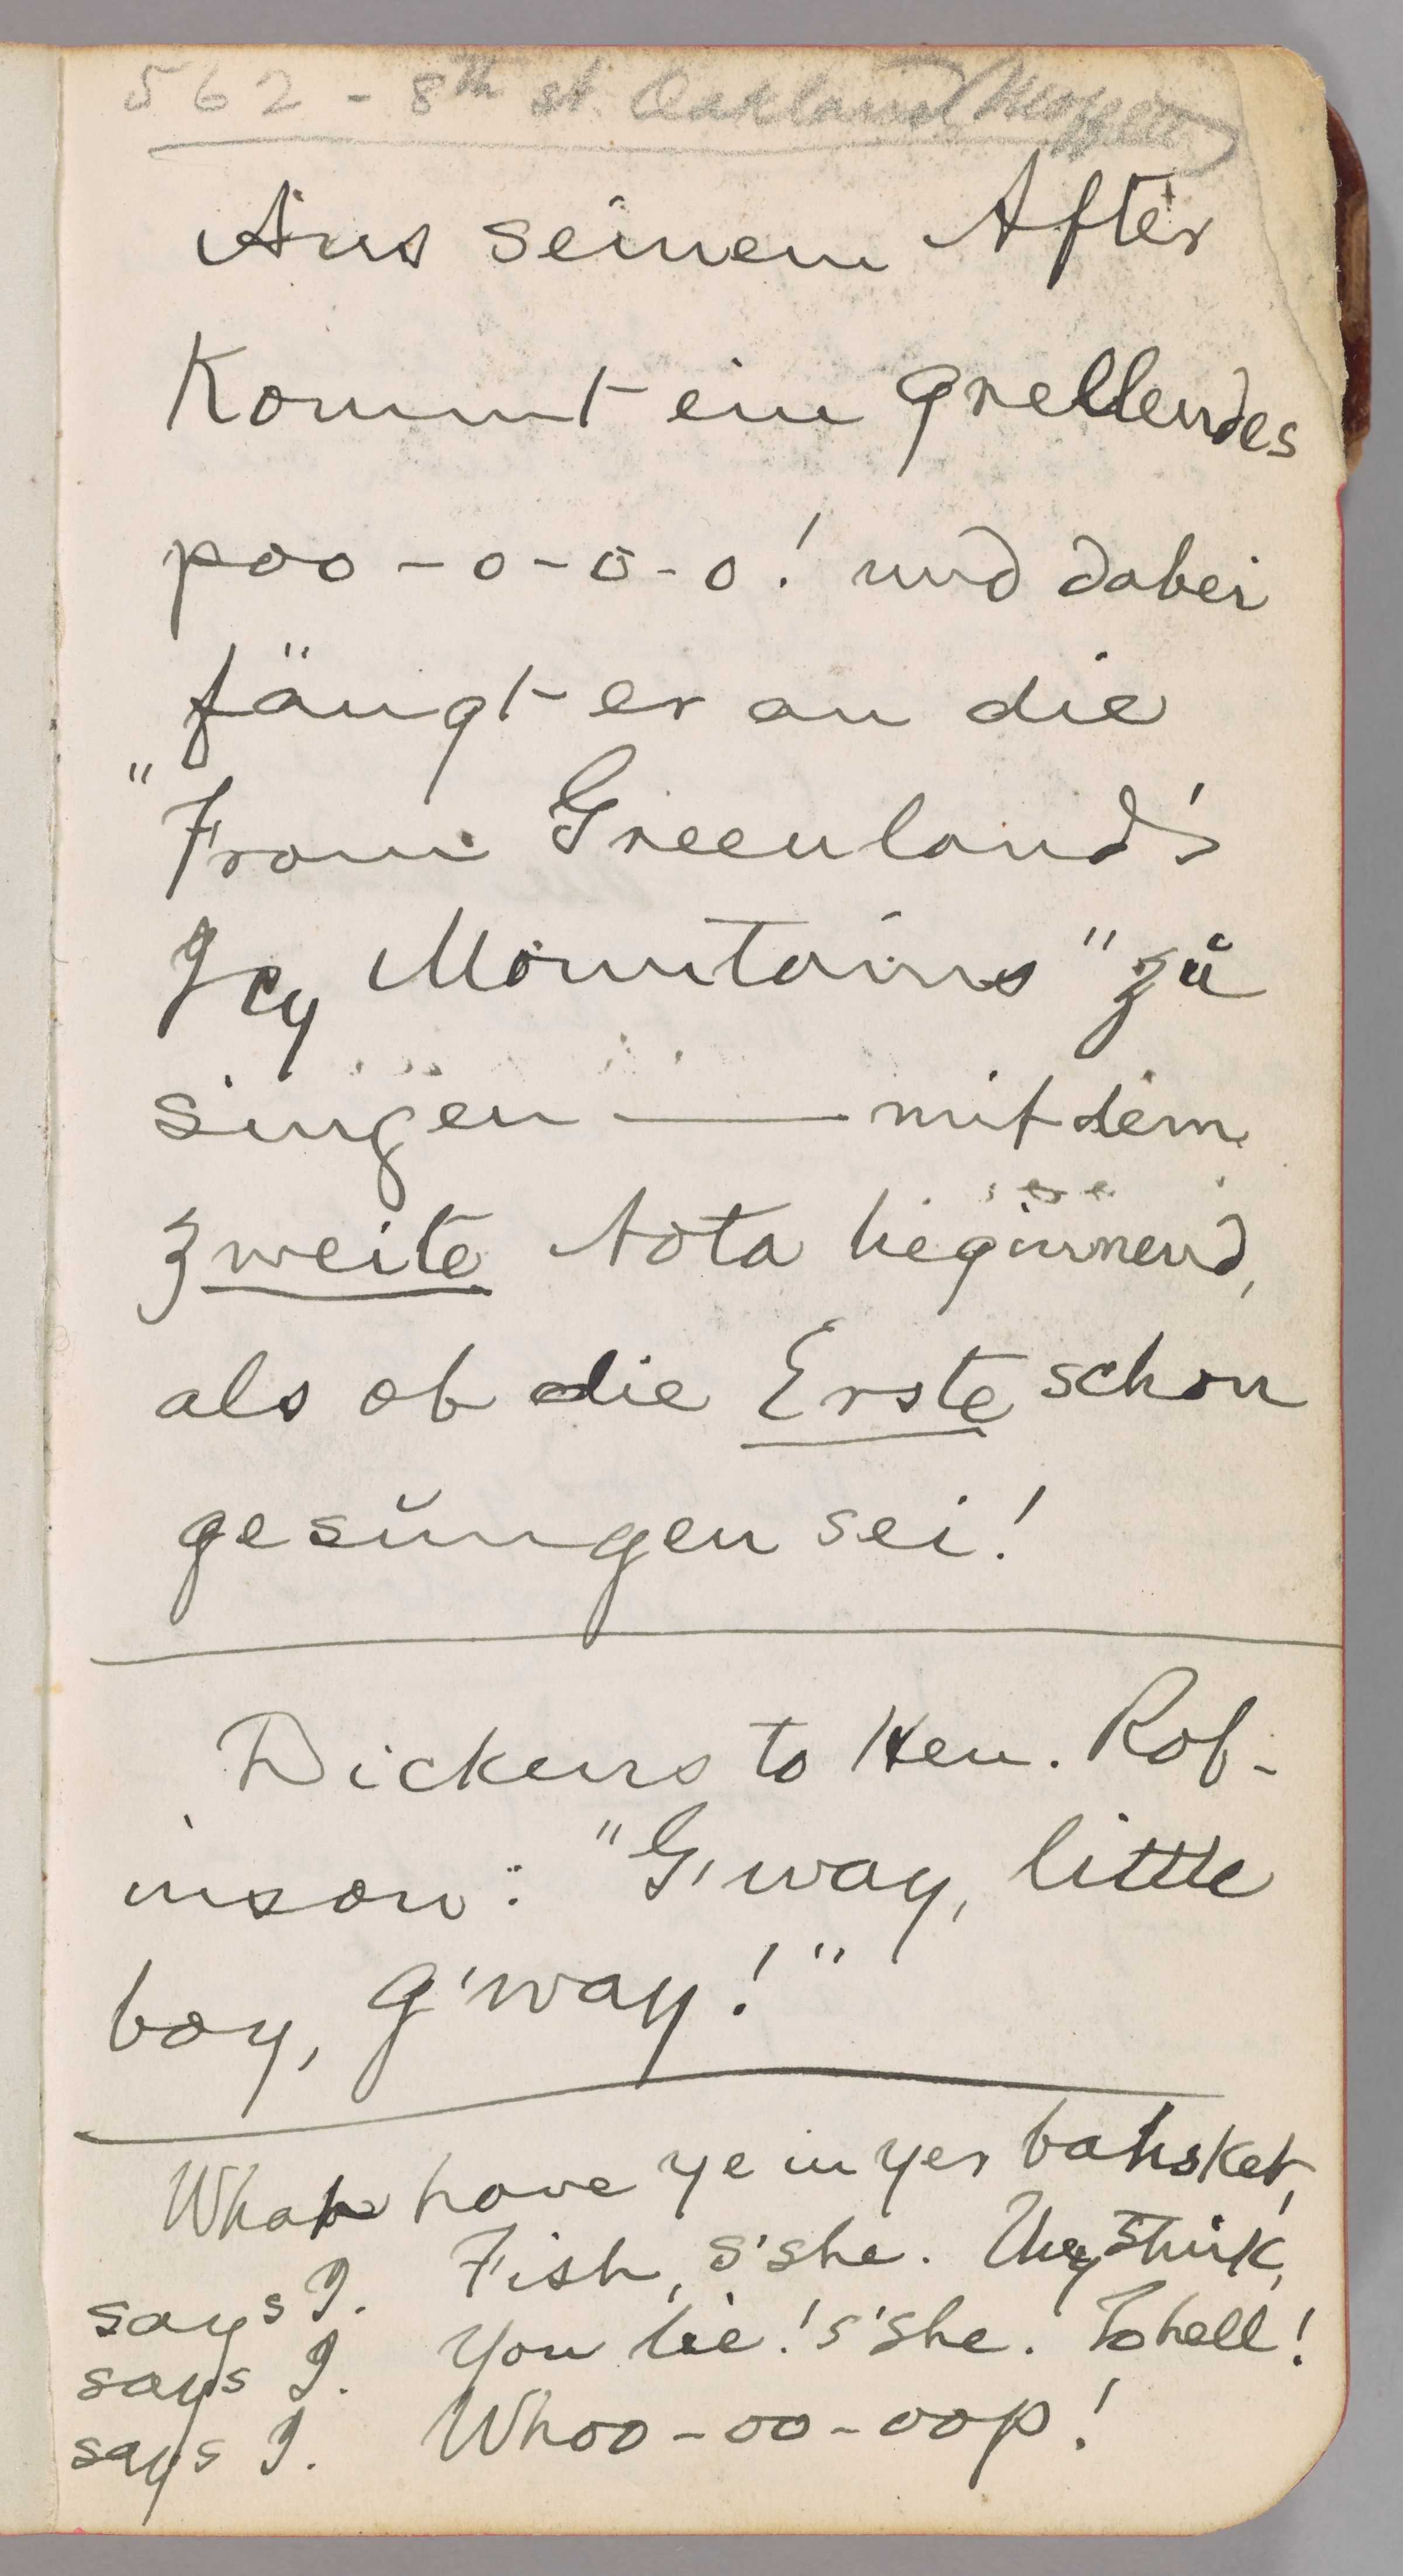 562 - 8th st. Oakland (Moffett)
Aus seinem After
Kommt ein grellendes
poo-o-o-o! und dabei
fängt er an die
"From Greenland's
Icy Mountains" zŭ
singen — mit dem
zweite Nota beginnend,
als ob die Erste schon
gesŭngen sei!
Dickens to Hen. Rob-
inson: "G'way, little
boy, g'way!"
What have ye in yer bahsket,
says I. Fish, s'she. They stink,
says I. You lie! s'she. To hell!
says I. Whoo-oo-oop!